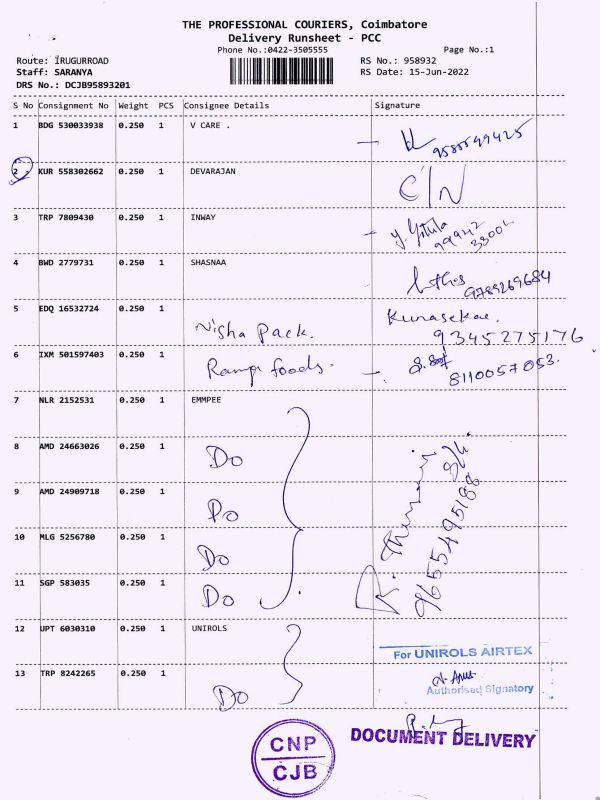 THE PROFESSIONAL COURIERS, Coimbatore
Delivery Runsheet - PCC
Phone No.:0422-3505555
Page No.:1
Route: IRUGURROAD
RS No.: 958932
Staff: SARANYA
RS Date: 15-Jun-2022
DRS No.: DCJB95893201
S No Consignment No Weight PCS Consignee Details Signature
1 BDG 530033938 0.250 1 V CARE .
2 KUR 558302662 0.250 1 DEVARAJAN C/N
3 TRP 7809430 0.250 1 INWAY
4 BWD 2779731 0.250 1 SHASNAA 9789269684
5 EDQ 16532724 0.250 1 Nisha Pack. Kunasekae. 9345275176
6 IXM 501597403 0.250 1 foods. 8110057053.
7 NLR 2152531 0.250 1 EMMPEE
8 AMD 24663026 0.250 1 Do
9 AMD 24909718 0.250 1 Do
10 MLG 5256780 0.250 1 Do
11 SGP 583035 0.250 1 Do
9655495188
12 UPT 6030310 0.250 1 UNIROLS
For UNIROLS AIRTEX
13 TRP 8242265 0.250 1 Do
Authorised Signatory
CNP
CJB
DOCUMENT DELIVERY